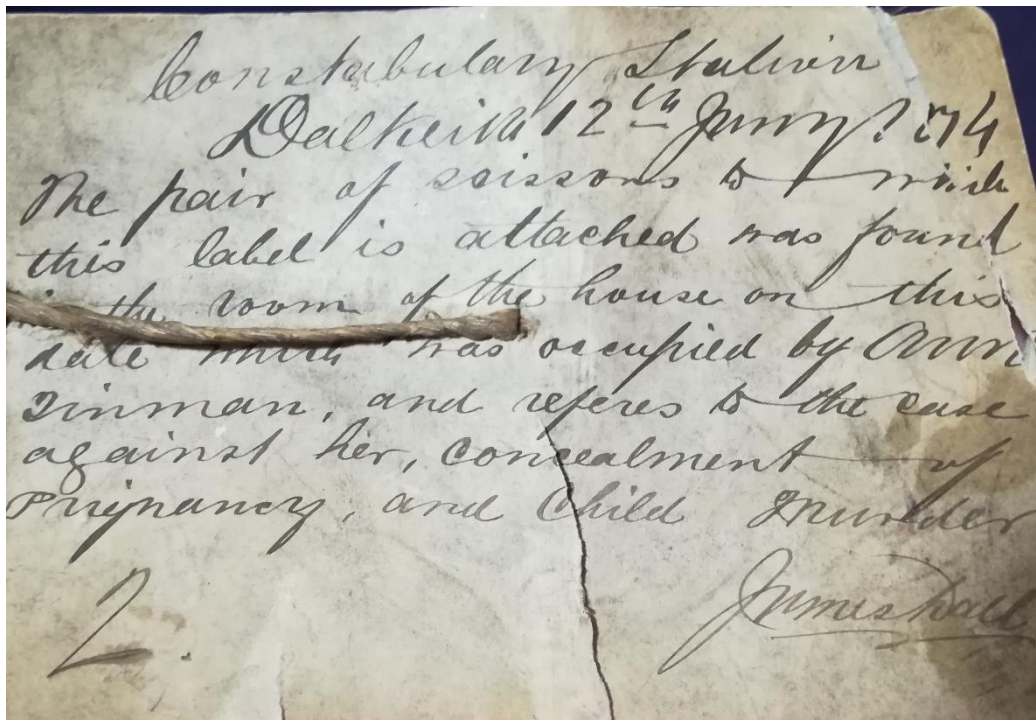 Constabulary Station
Dalkeith 12th Jany. 1874
The pair of scissors to which
this label is attached was found
in the room of the house on this
date which was occupied by Ann
Tinman, and referes to the case
against her, concealment of
Pregnancy, and Child Murder
James
2.